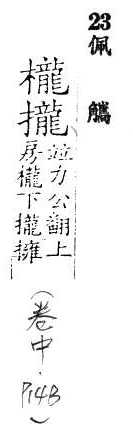 23佩觿
櫳攏
竝力公翻上
房櫳下攏擁
(卷中.P14B)